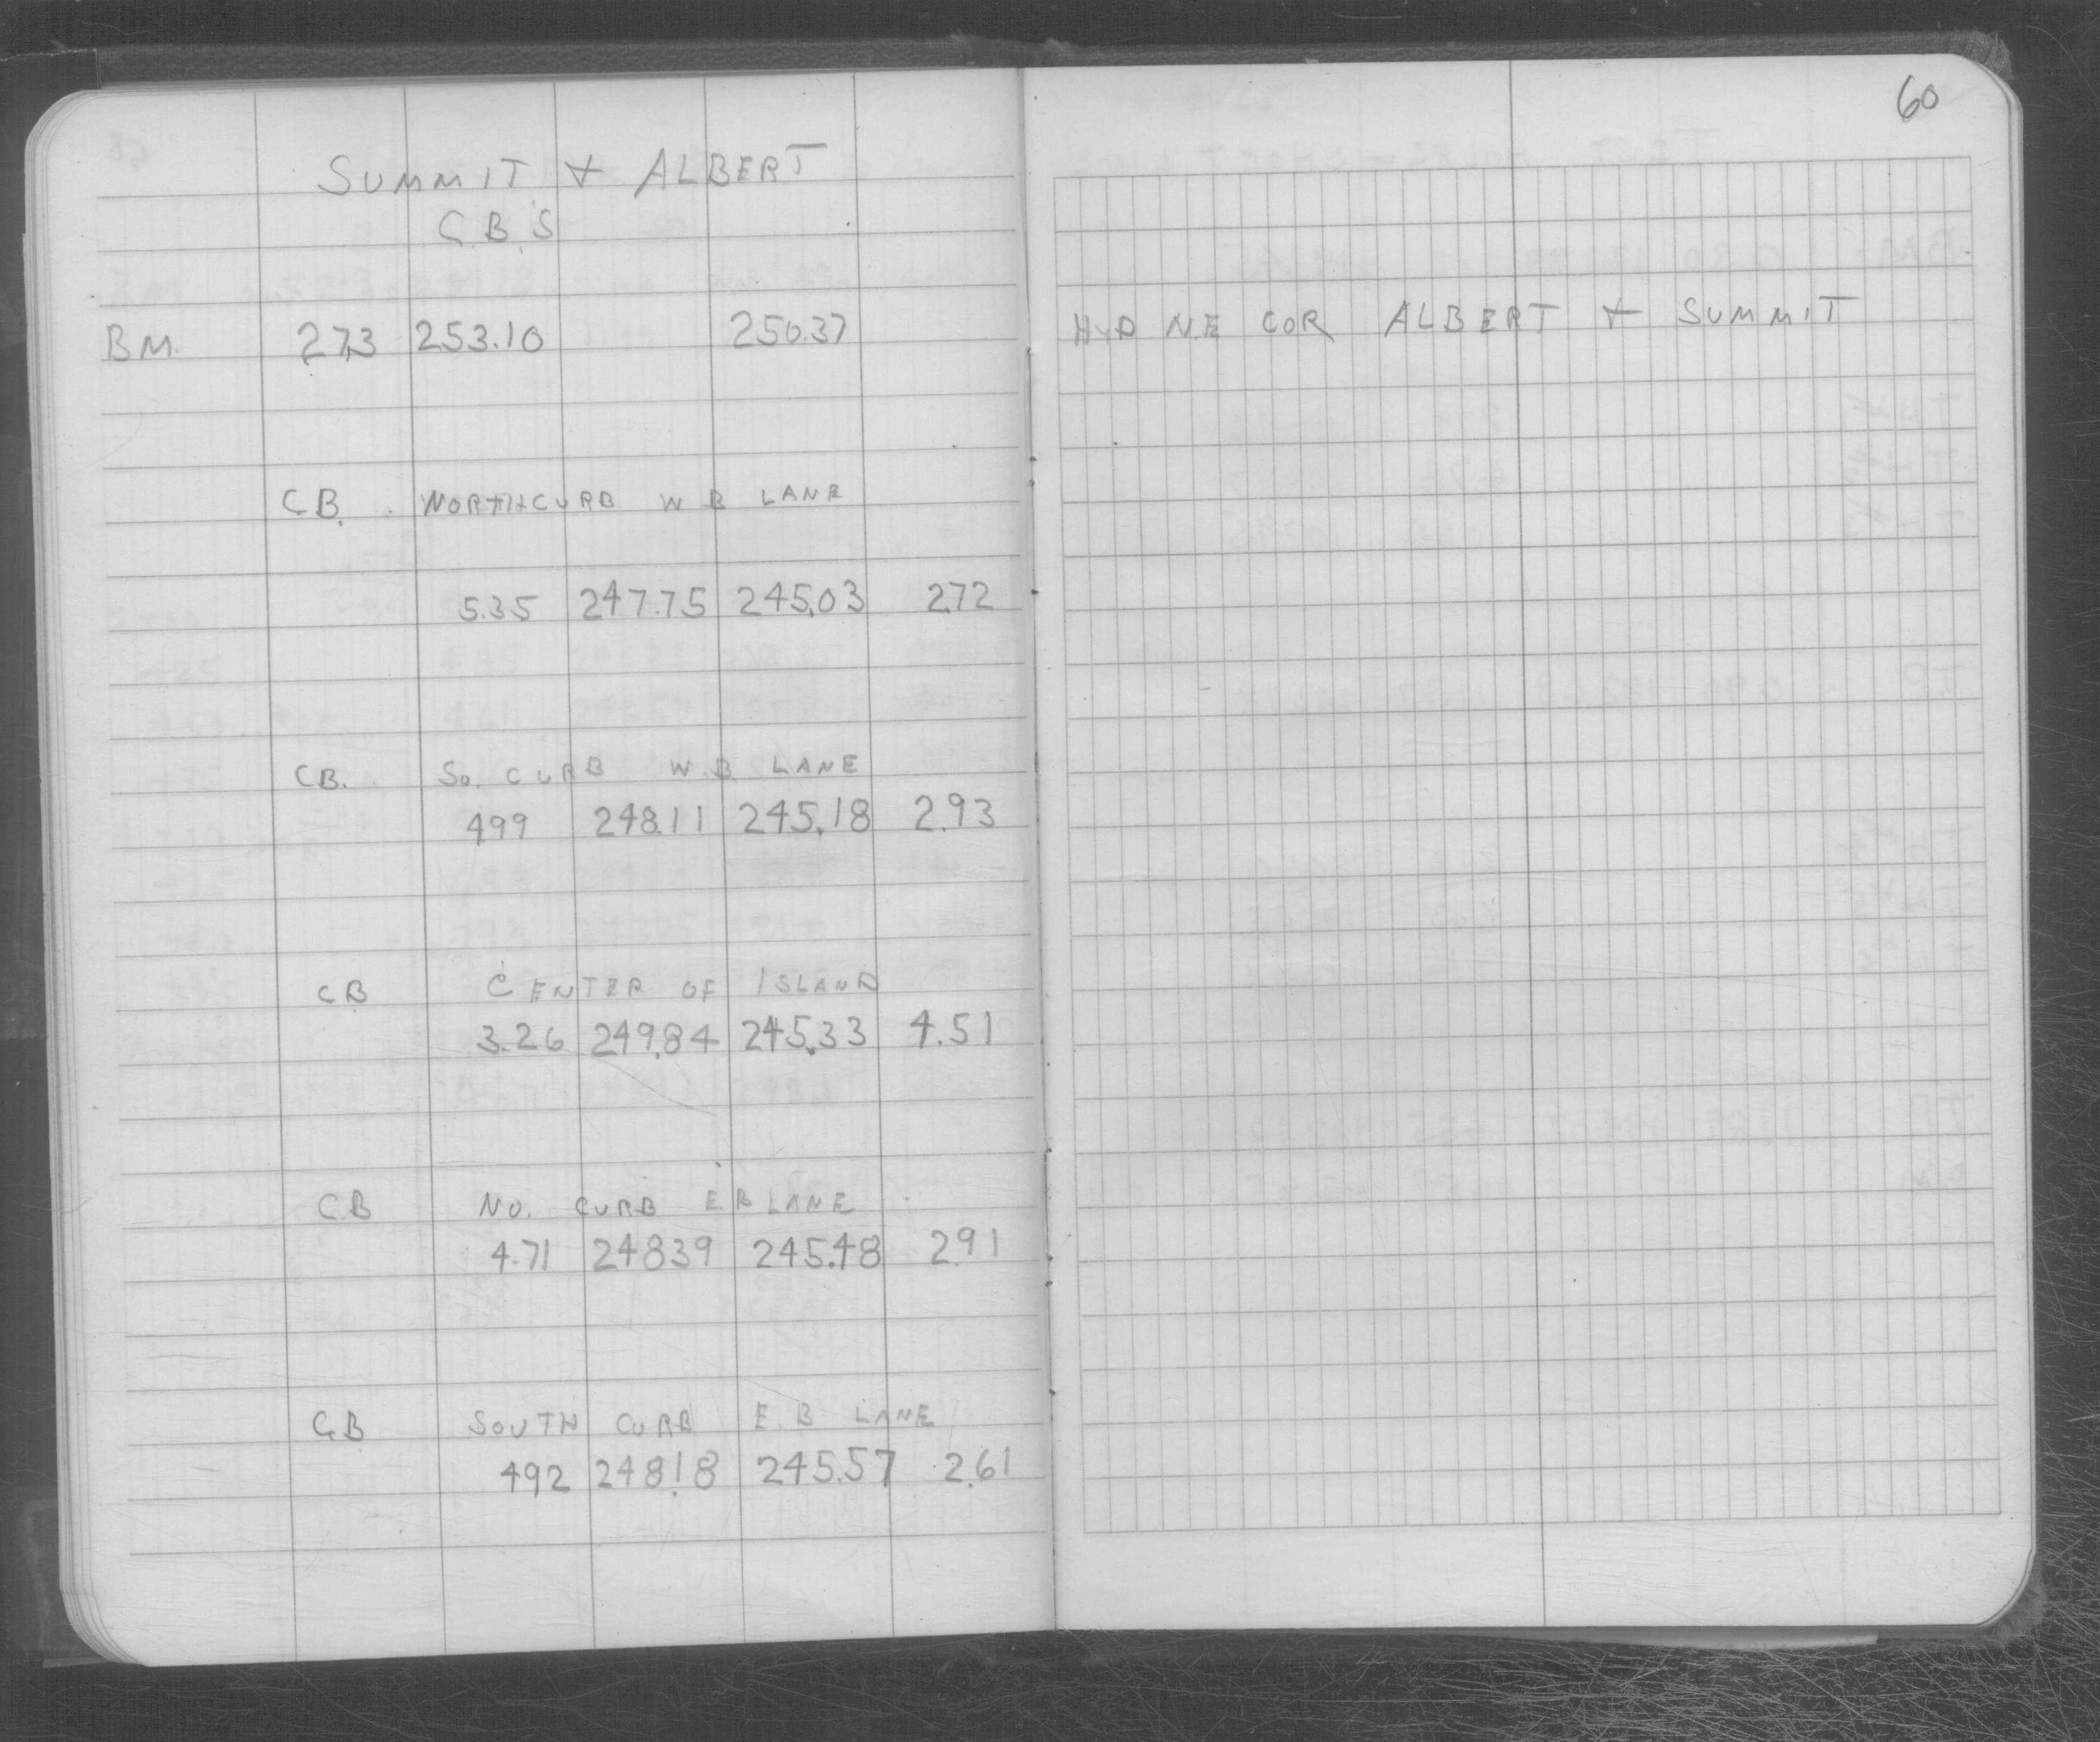 SUMMIT & ALBERT
C.B.'S
BM. 2.73 253.10 250.37
C.B. NORTH CURB W B LANE
5.35 247.75 245.03 2.72
C.B. SO. CURB W.B LANE
499 248.11 245.18 2.93
CB CENTER OF ISLAND
3.26 249.84 245.33 4.51
C.B NO. CURB E.B LANE
4.71 24839 245.48 2.91
C.B SOUTH CURB E.B LANE
492 248.18 245.57 2.61
60
HYD N.E COR ALBERT & SUMMIT